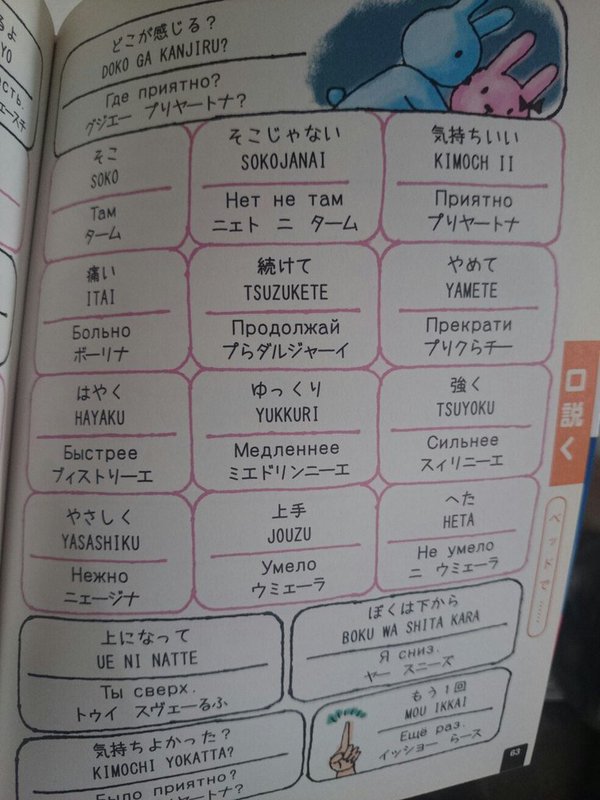 るよ
YO
ость.
エースチ
どこが感じる？
DOKO GA KANJIRU?
Где приятно?
グジエー プリヤートナ？
そこ
SOKO
Там
ターム
そこじゃない
SOKOJANAI
Нет не там
ニェト ニ ターム
気持ちいい
KIMOCH II
Приятно
プリヤートナ
痛い
ITAI
Больно
ボーリナ
続けて
TSUZUKETE
Продолжай
プらダルジャーイ
やめて
YAMETE
Прекрати
プリクらチー
はやく
HAYAKU
Быстрее
ブィストリーエ
ゆっくり
YUKKURI
Медленнее
ミエドリンニーエ
強く
TSUYOKU
Сильнее
スィリニーエ
やさしく
YASASHIKU
Нежно
ニェージナ
上手
JOUZU
Умело
ウミェーラ
へた
HETA
Не умело
ニ ウミェーラ
上になって
UE NI NATTE
Ты сверх.
トゥイ スヴェーるふ
ぼくは下から
BOKU WA SHITA KARA
Я сниз.
ヤー スニーズ
気持ちよかった？
KIMOCHI YOKATTA?
Было приятно?
もう1回
MOU IKKAI
Ещё раз.
イッショー らース
口説く
ベッドで……
63